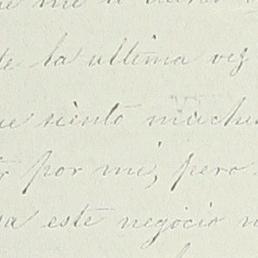 me
te la ultima vez
ue siento muchi
por mi, pero
ya este negocio